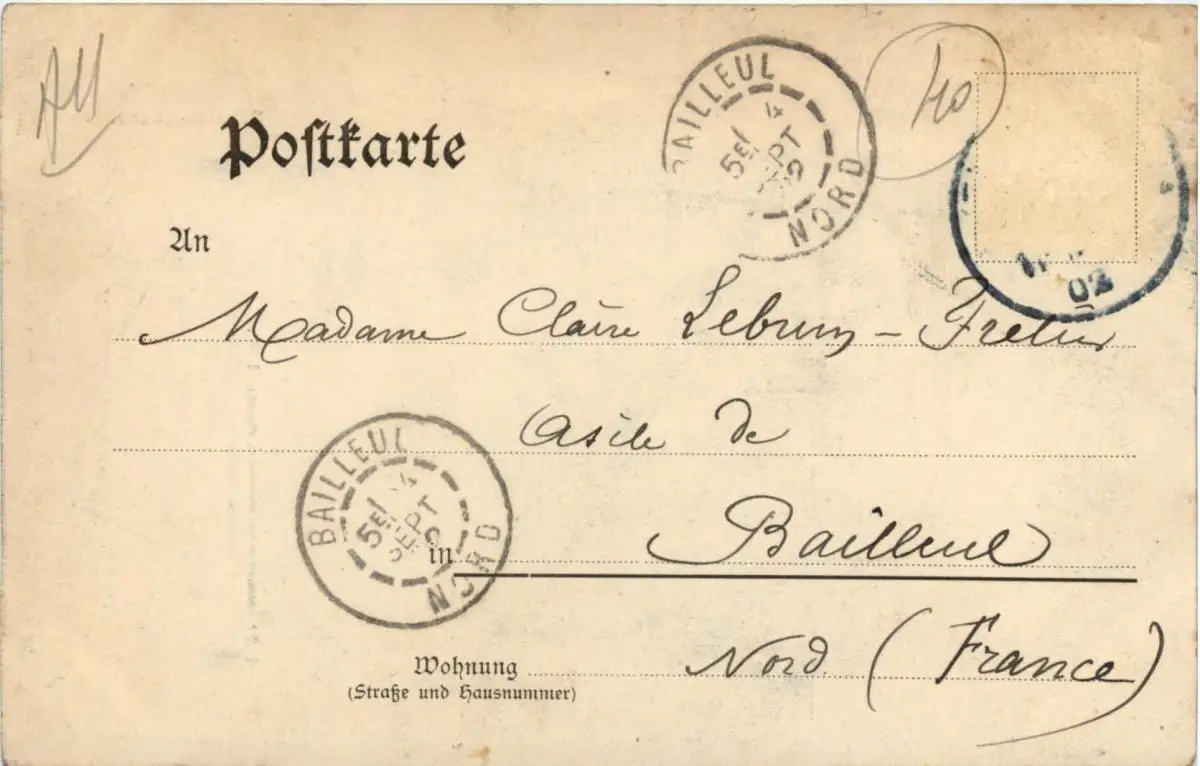 All
40
Postkarte
BAILLEUL
5E/ 4
SEPT
02
NORD
02
An
Madame Claire Lebrun-
Asile de
BAILLEUL
5E/ 4
SEPT
NORD
in Bailleul
Wohnung Nord (France)
(Straße und Hausnummer)